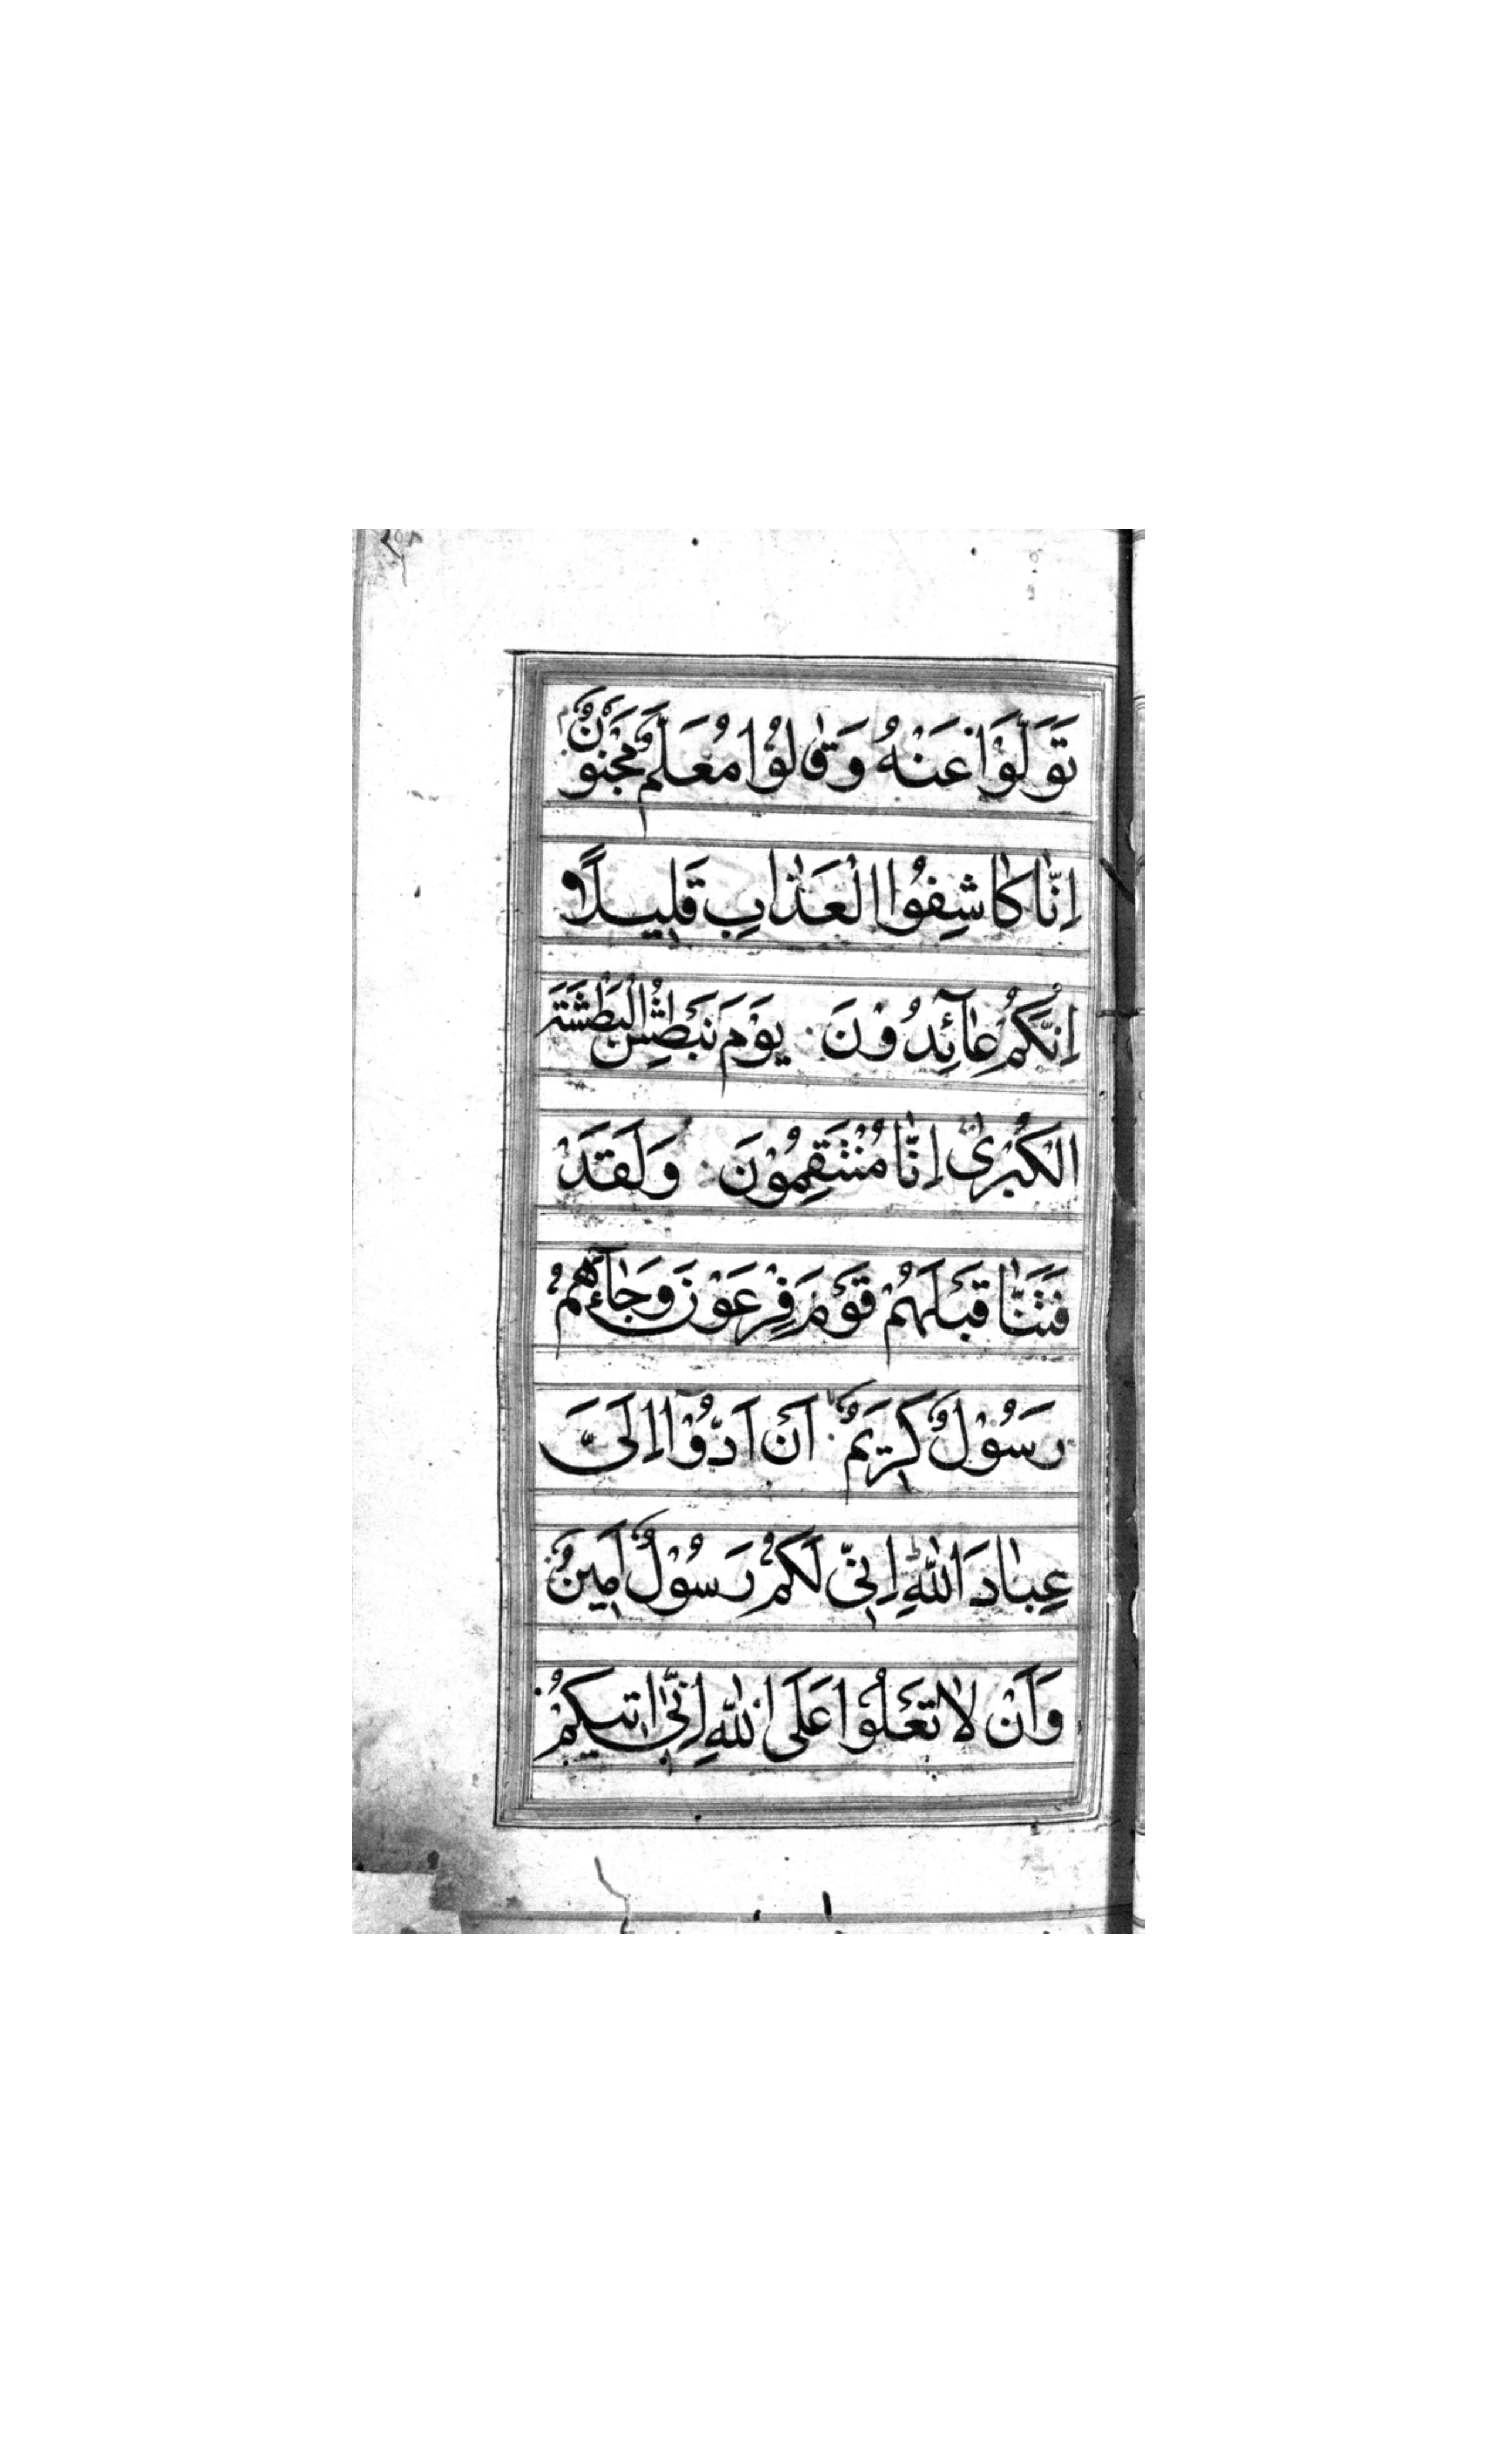 تَوَلَّوْا عَنْهُ وَقَالُوْا مُعَلَّمٌ مَجْنُوْنٌ
اِنَّا كَاشِفُوا الْعَذَابِ قَلِيلًا
اِنَّكُمْ عَآئِدُوْنَ يَوْمَ نَبْطِشُ الْبَطْشَةَ
الْكُبْرٰى اِنَّا مُنْتَقِمُوْنَ وَلَقَدْ
فَتَنَّا قَبْلَهُمْ قَوْمَ فِرْعَوْنَ وَجَآءَهُمْ
رَسُوْلٌ كَرِيْمٌ اَنْ اَدُّوْٓا اِلَىَّ
عِبَادَ اللّٰهِ اِنِّى لَكُمْ رَسُوْلٌ اَمِينٌ
وَاَنْ لَا تَعْلُوْا عَلَى اللّٰهِ اِنِّىٓ اٰتِيكُمْ